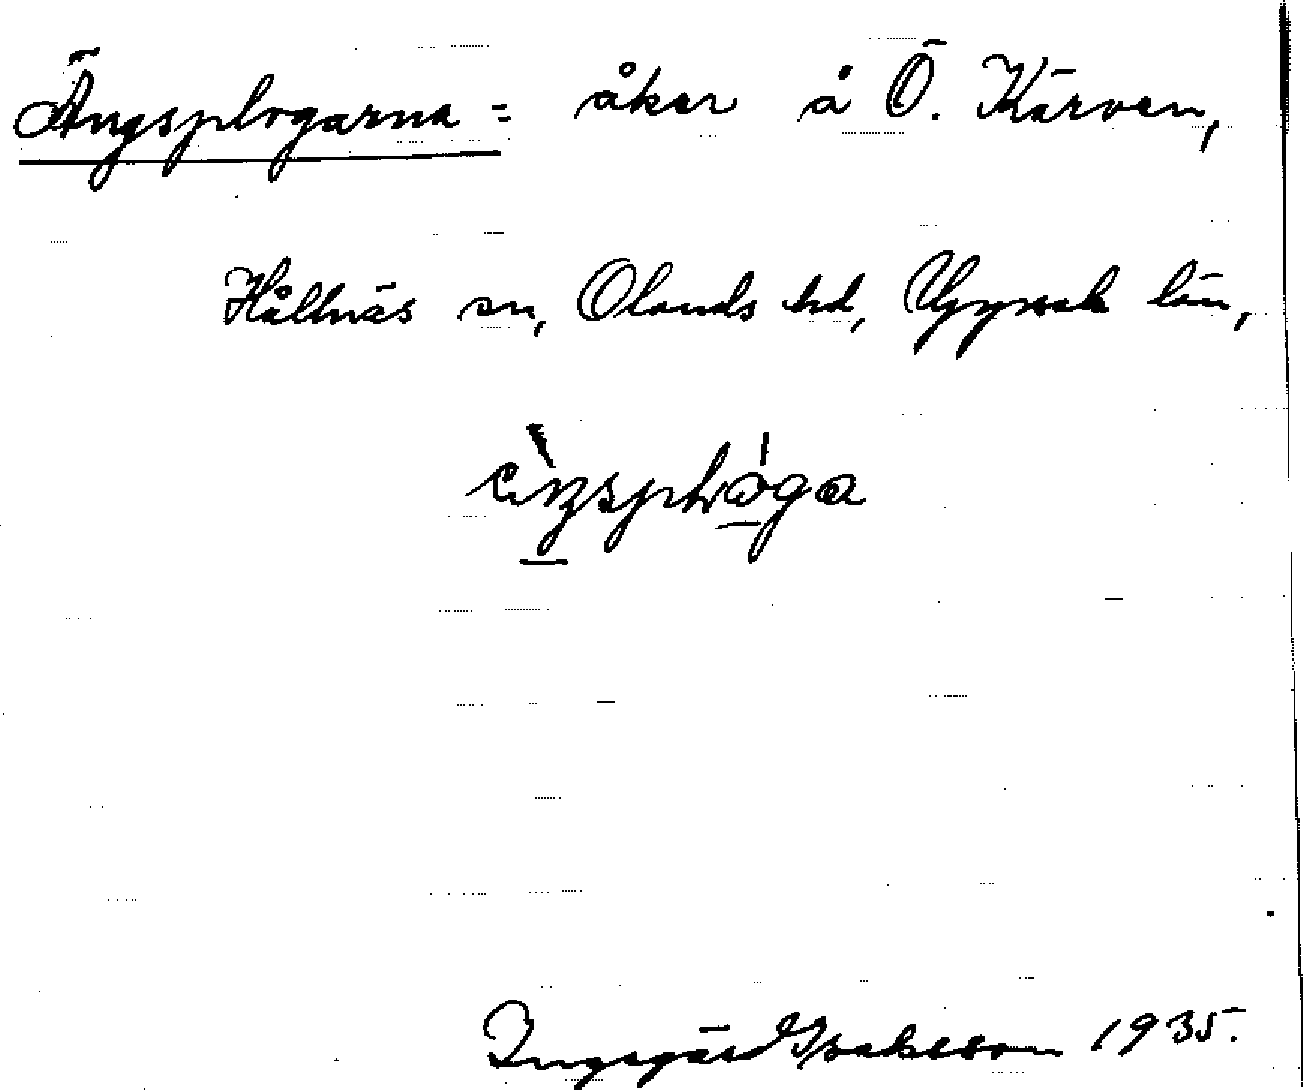 Ängsplogarna = åker å Ö. Kärven,
Hållnäs sn, Olands hd, Upps. län,
Ingegärd Isaksson 1935.